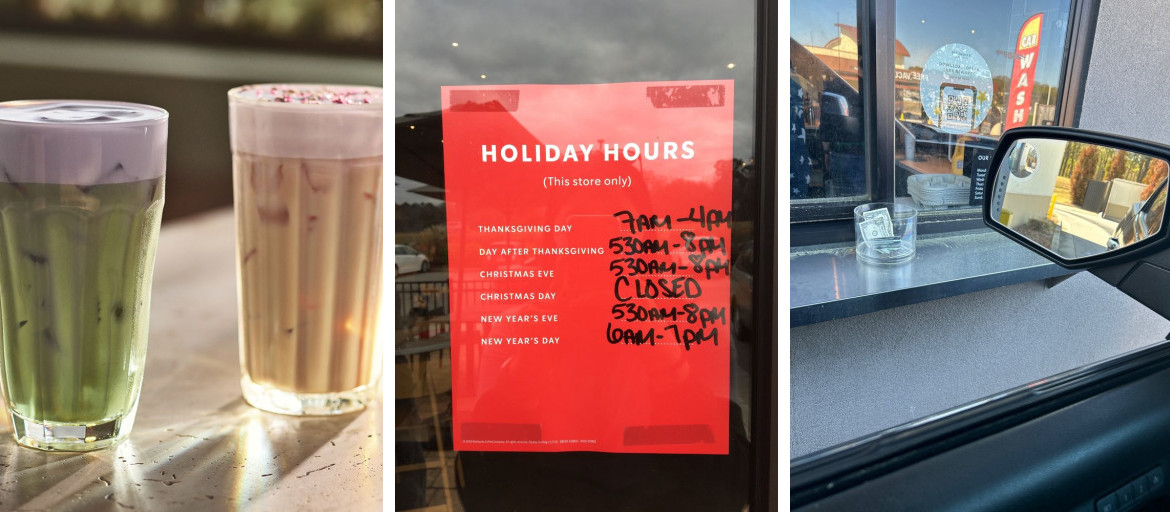 HOLIDAY HOURS
(This store only)
THANKSGIVING DAY 7AM-4PM
DAY AFTER THANKSGIVING 530AM-8PM
CHRISTMAS EVE 530AM-8PM
CHRISTMAS DAY CLOSED
NEW YEAR'S EVE 530AM-8PM
NEW YEAR'S DAY 6AM-7PM
CAR
WASH
OUR